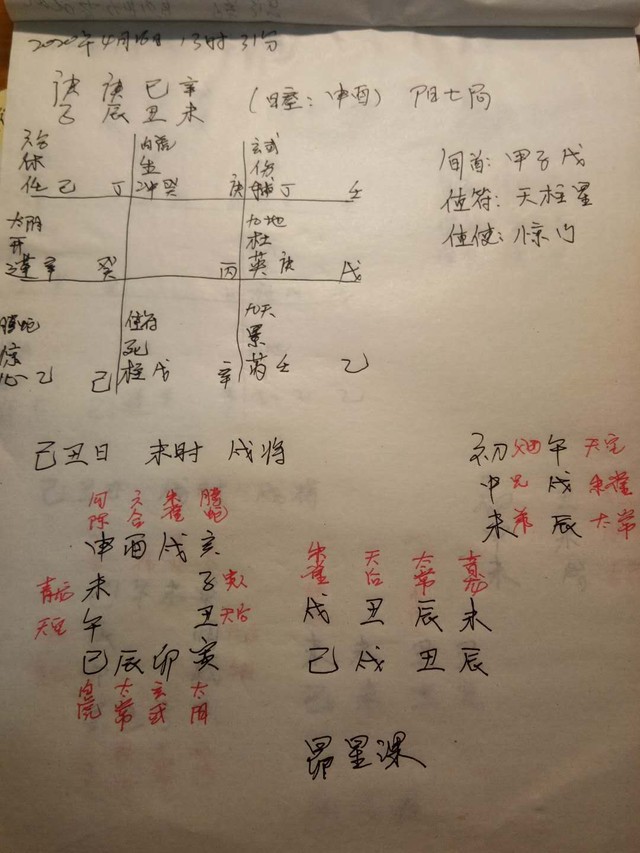 2020年4月18日 13时31分
庚 庚 己 辛
子 辰 丑 未
(日空：申酉) 阳七局
旬首：甲子戊
值符：天柱星
值使：惊门
六合 白虎 玄武
休 生 伤
任己 丁 冲癸 庚 辅丁 壬
太阴 九地
开 杜
蓬辛 癸 丙 英庚 戊
腾蛇 值符 九天
惊 死 景
心乙 己 柱戊 辛 芮壬 乙
己丑日 未时 戌将
初 父 午 天空
中 兄 戌 朱雀
末 弟 辰 太常
勾陈 六合 朱雀 腾蛇
申 酉 戌 亥
未 子 贵人
天空 午 丑 天后
巳 辰 卯 寅
白虎 太常 玄武 太阴
朱雀 天后 太常
戌 丑 辰 未
己 戌 丑 辰
昴星课